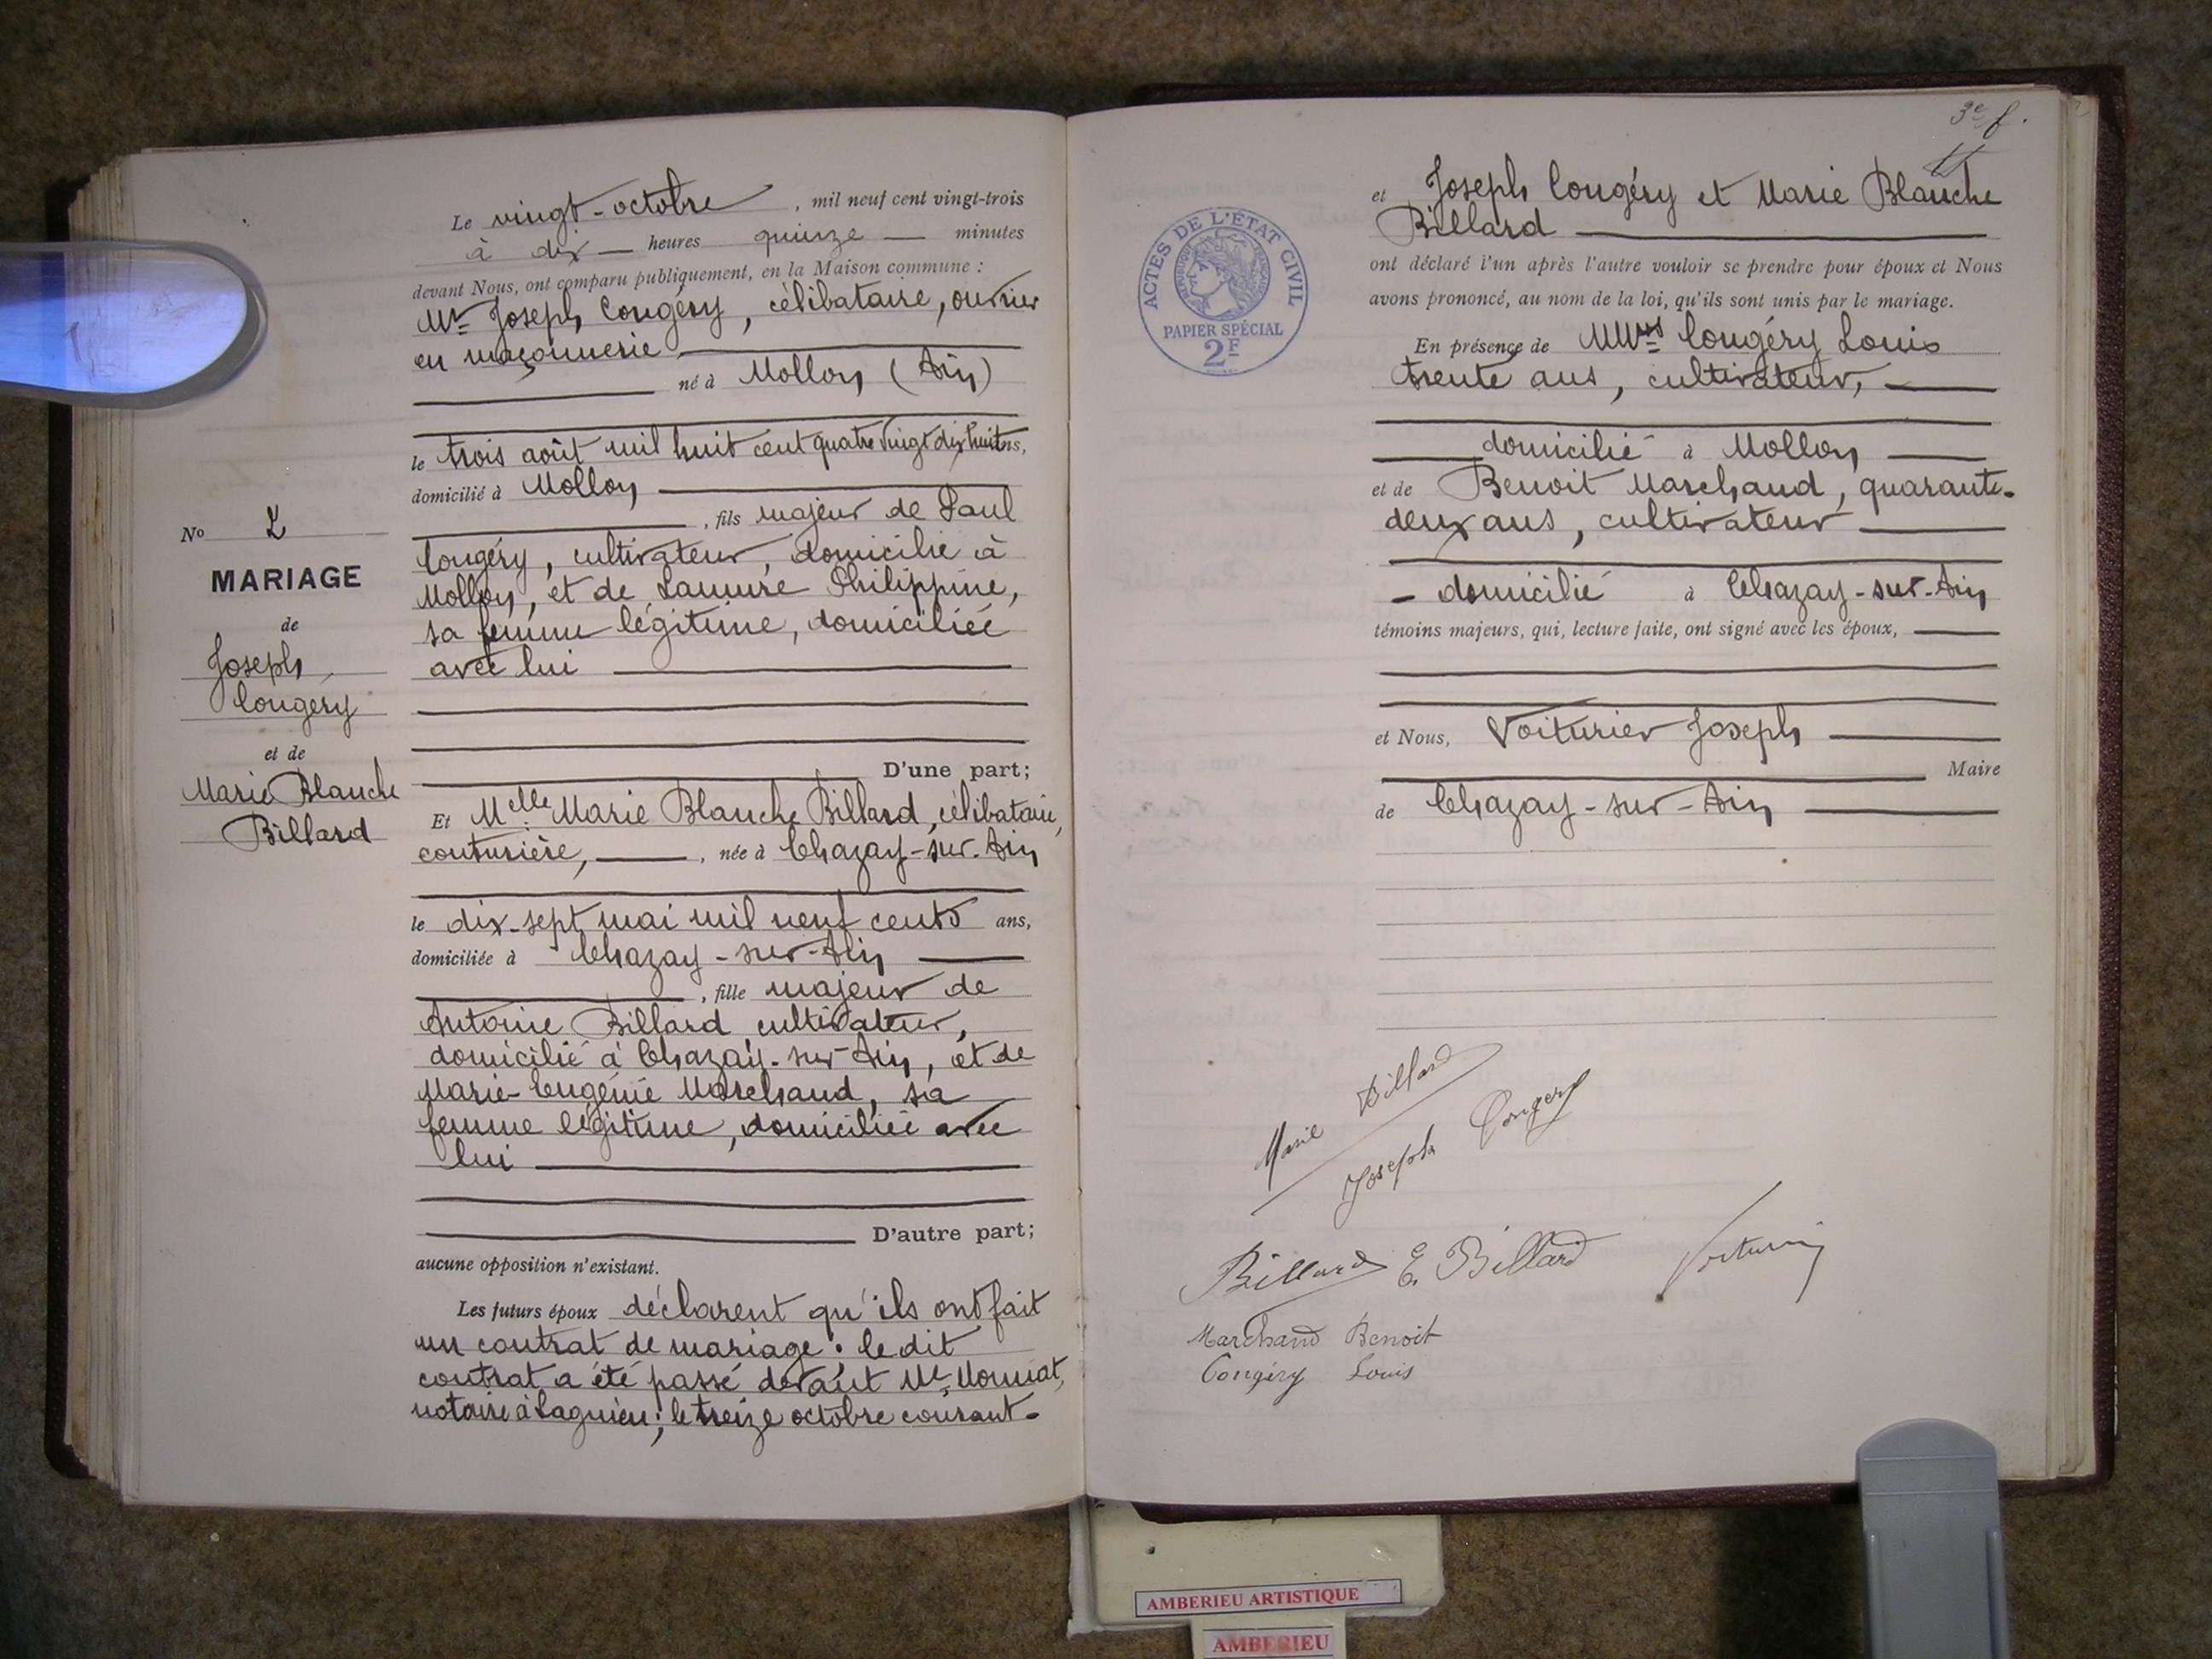 Le vingt-octobre, mil neuf cent vingt-trois
à dix heures quinze minutes
devant Nous, ont comparu publiquement, en la Maison commune :
Mr Joseph Congéry, célibataire, ouvrier
en maçonnerie
né à Mollon (Ain)
le trois août mil huit cent quatre vingt dix huit ans,
domicilié à Mollon
, fils majeur de Paul
Congéry, cultivateur, domicilié à
Mollon, et de Philippine,
sa femme légitime, domiciliée
avec lui
D'une part;
No 2
MARIAGE
de
Joseph
Congery
et de
Marie Blanche
Billard
Et Melle Marie Blanche Billard, célibataire,
couturière, , née à Chazay-sur-Ain
le dix-sept mai mil neuf cents ans,
domiciliée à Chazay-sur-Ain
, fille majeur de
Antoine Billard cultivateur,
domicilié à Chazay-sur-Ain, et de
Marie-Eugénie Marchand, sa
femme légitime, domiciliée avec
lui
D'autre part;
aucune opposition n'existant.
Les futurs époux déclarent qu'ils ont fait
un contrat de mariage : le dit
contrat a été passé devant Me
notaire à Lagnieu; le treize octobre courant.
3e f.
ACTES DE L'ÉTAT CIVIL
RÉPUBLIQUE FRANÇAISE
PAPIER SPÉCIAL
2F
et Joseph Congéry et Marie Blanche
Billard
ont déclaré l'un après l'autre vouloir se prendre pour époux et Nous
avons prononcé, au nom de la loi, qu'ils sont unis par le mariage.
En présence de MMrs Congéry Louis
trente ans, cultivateur,
domicilié à Mollon
et de Benoit Marchand, quarante-
deux ans, cultivateur
domicilié à Chazay-sur-Ain
témoins majeurs, qui, lecture faite, ont signé avec les époux,
et Nous, Voiturier Joseph
Maire
de Chazay-sur-Ain
Marie Billard
Joseph Congery
Billard E. Billard Voiturier
Marchand Benoit
Congéry Louis
AMBERIEU ARTISTIQUE
AMBERIEU